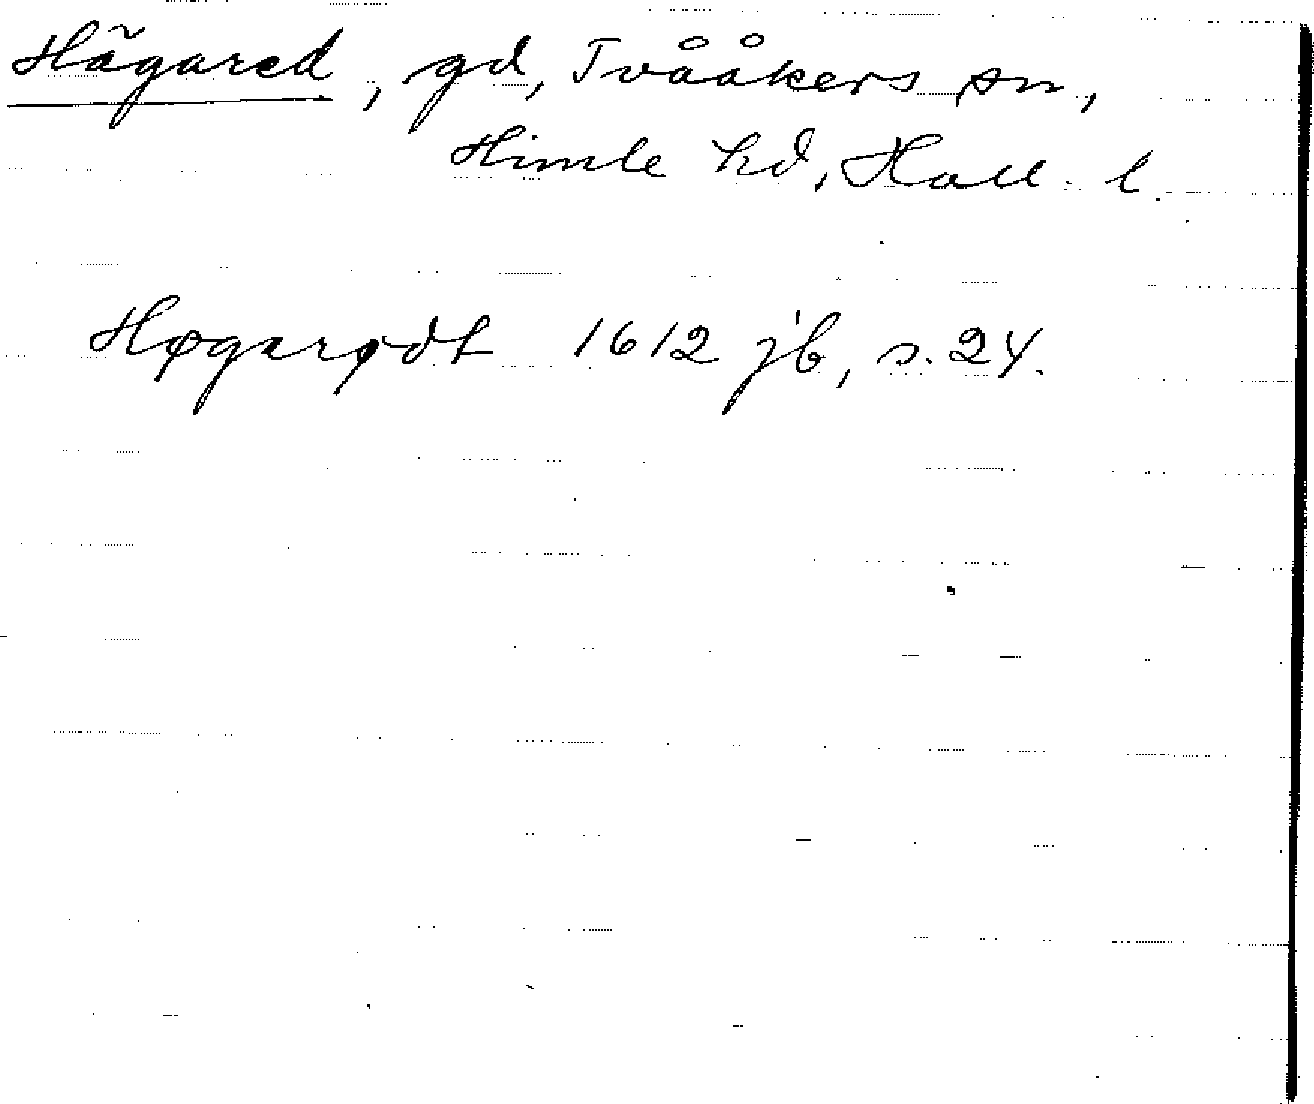 Hägared, gd, Tvååkers sn,
Himle hd, Hall. l.
Høgerødt 1612 jb, s. 24.